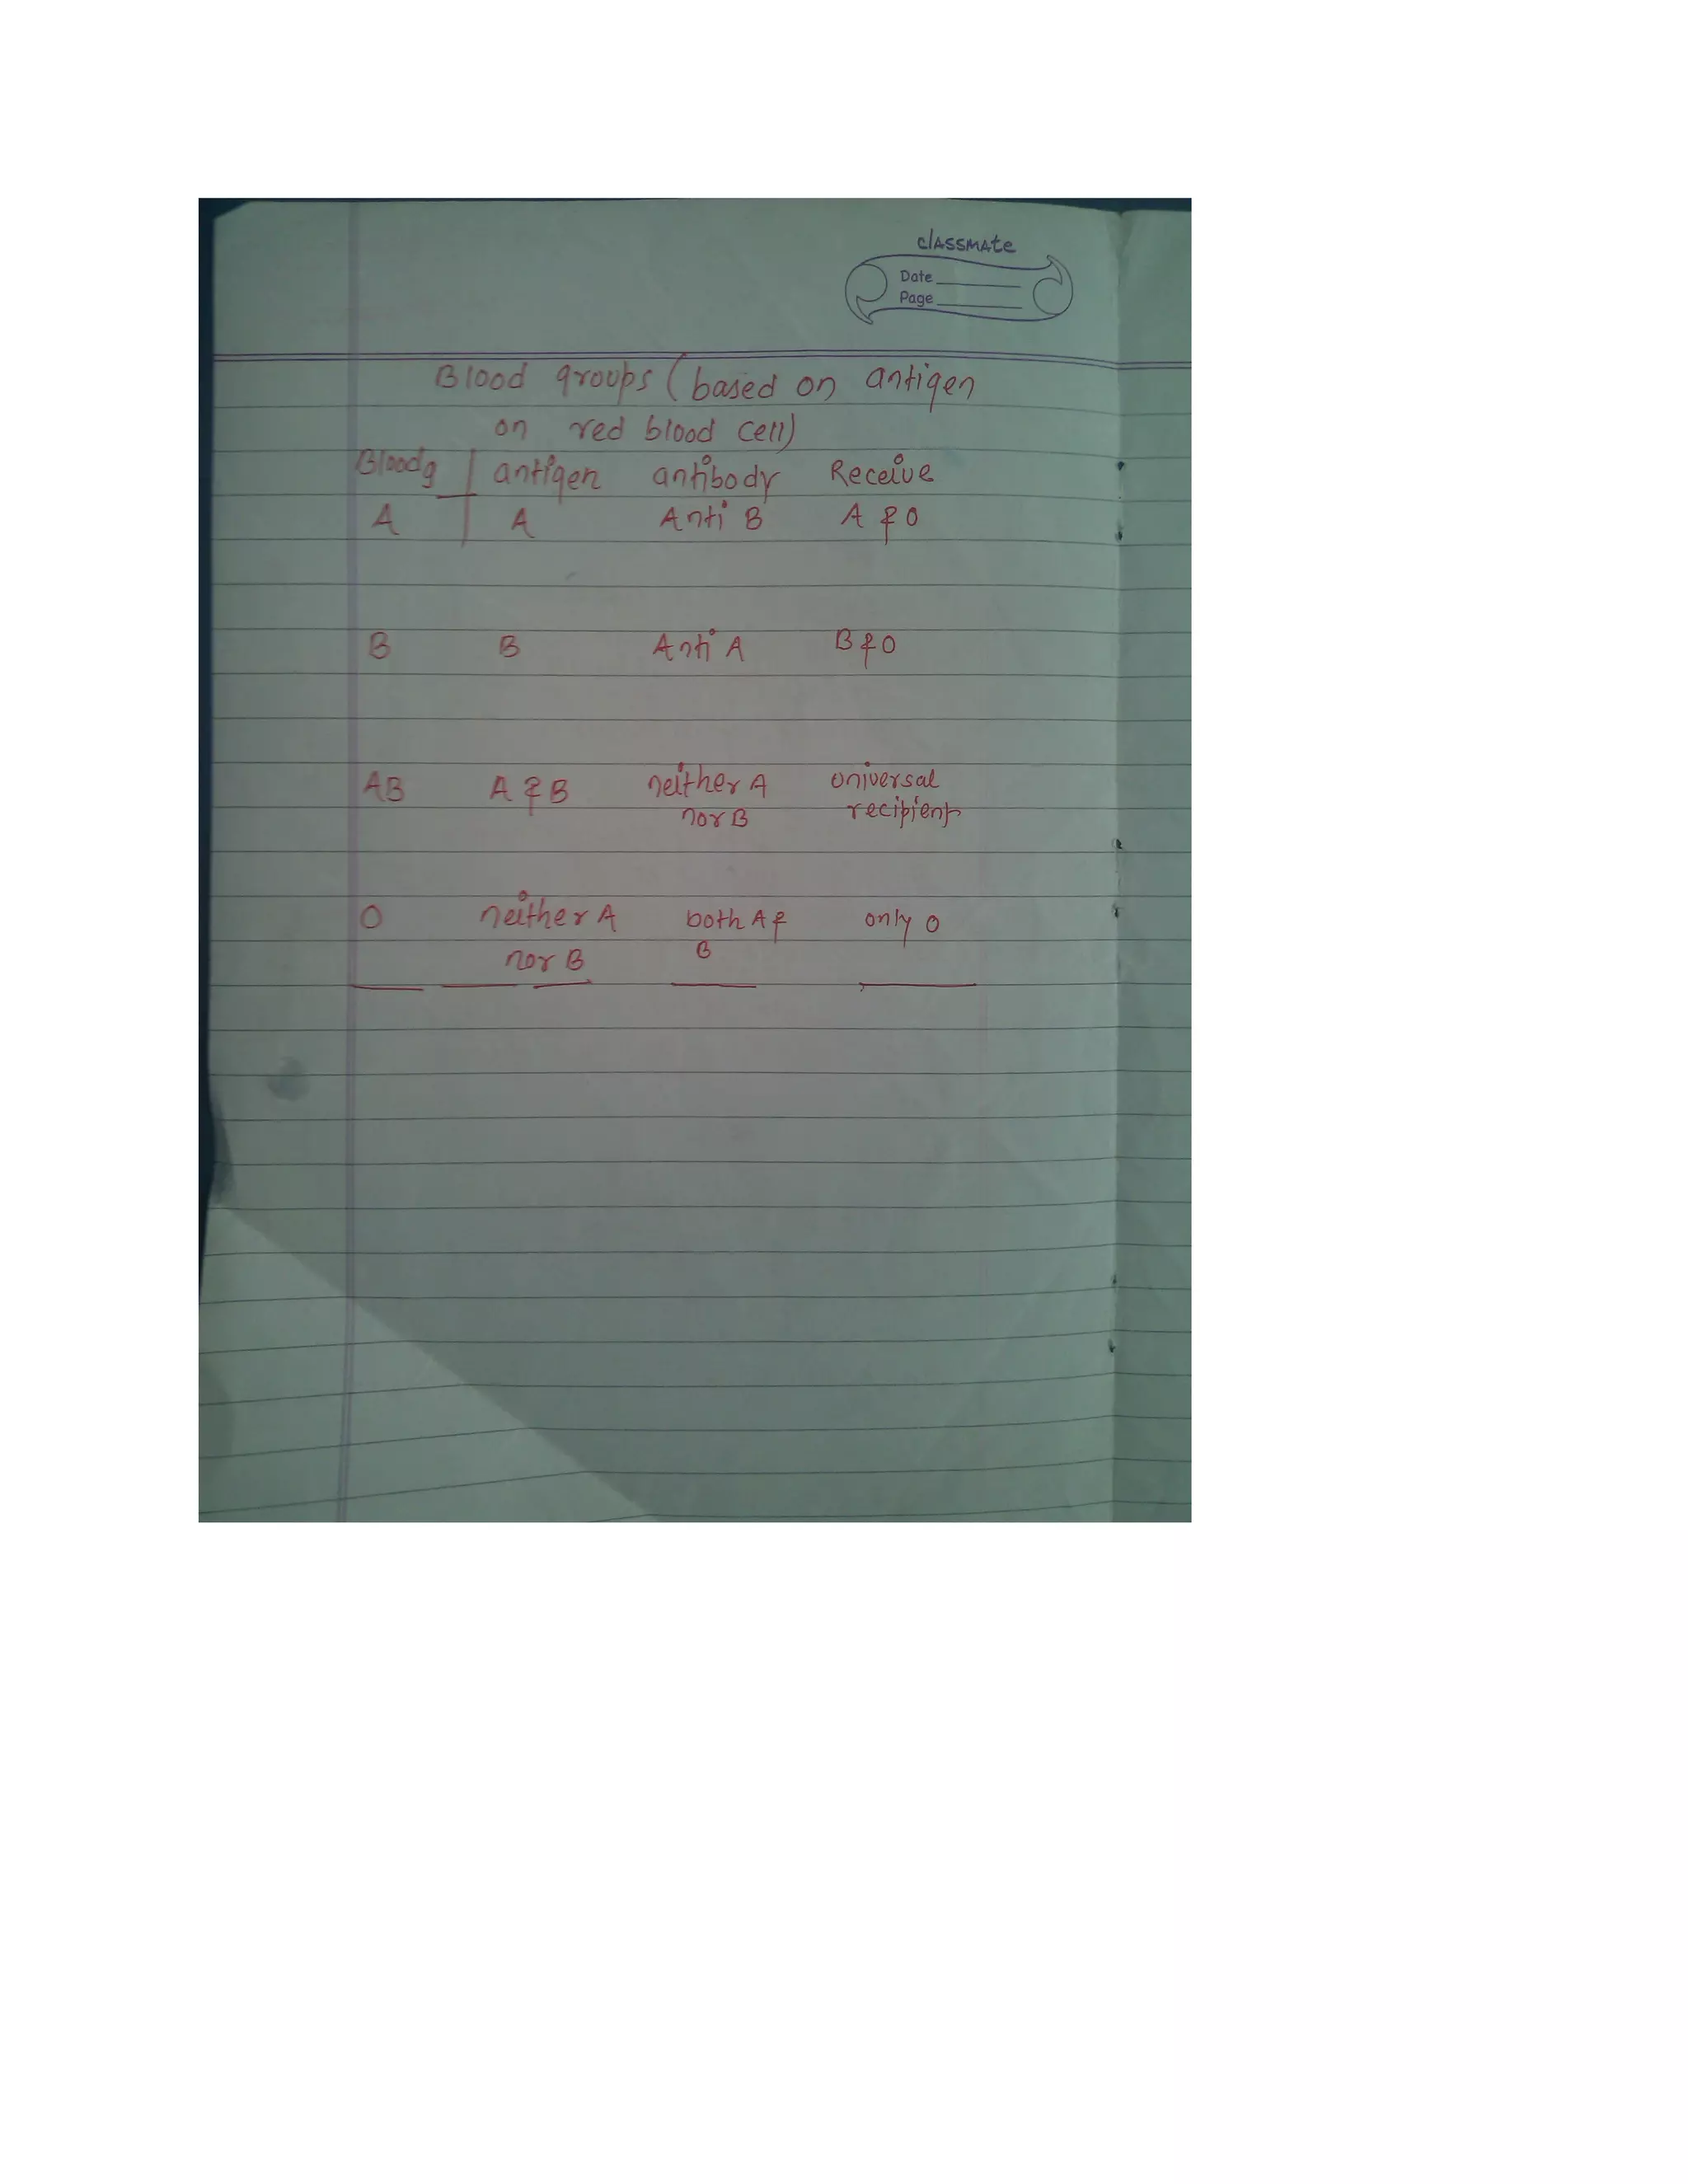 classmate
Date
Page
Blood groups (based on antigen
on red blood cell)
Bloodg antigen antibody Receive
A A Anti B A & O
B B Anti A B & O
AB A & B neither A universal
nor B recipient
O neither A both A & only O
nor B B